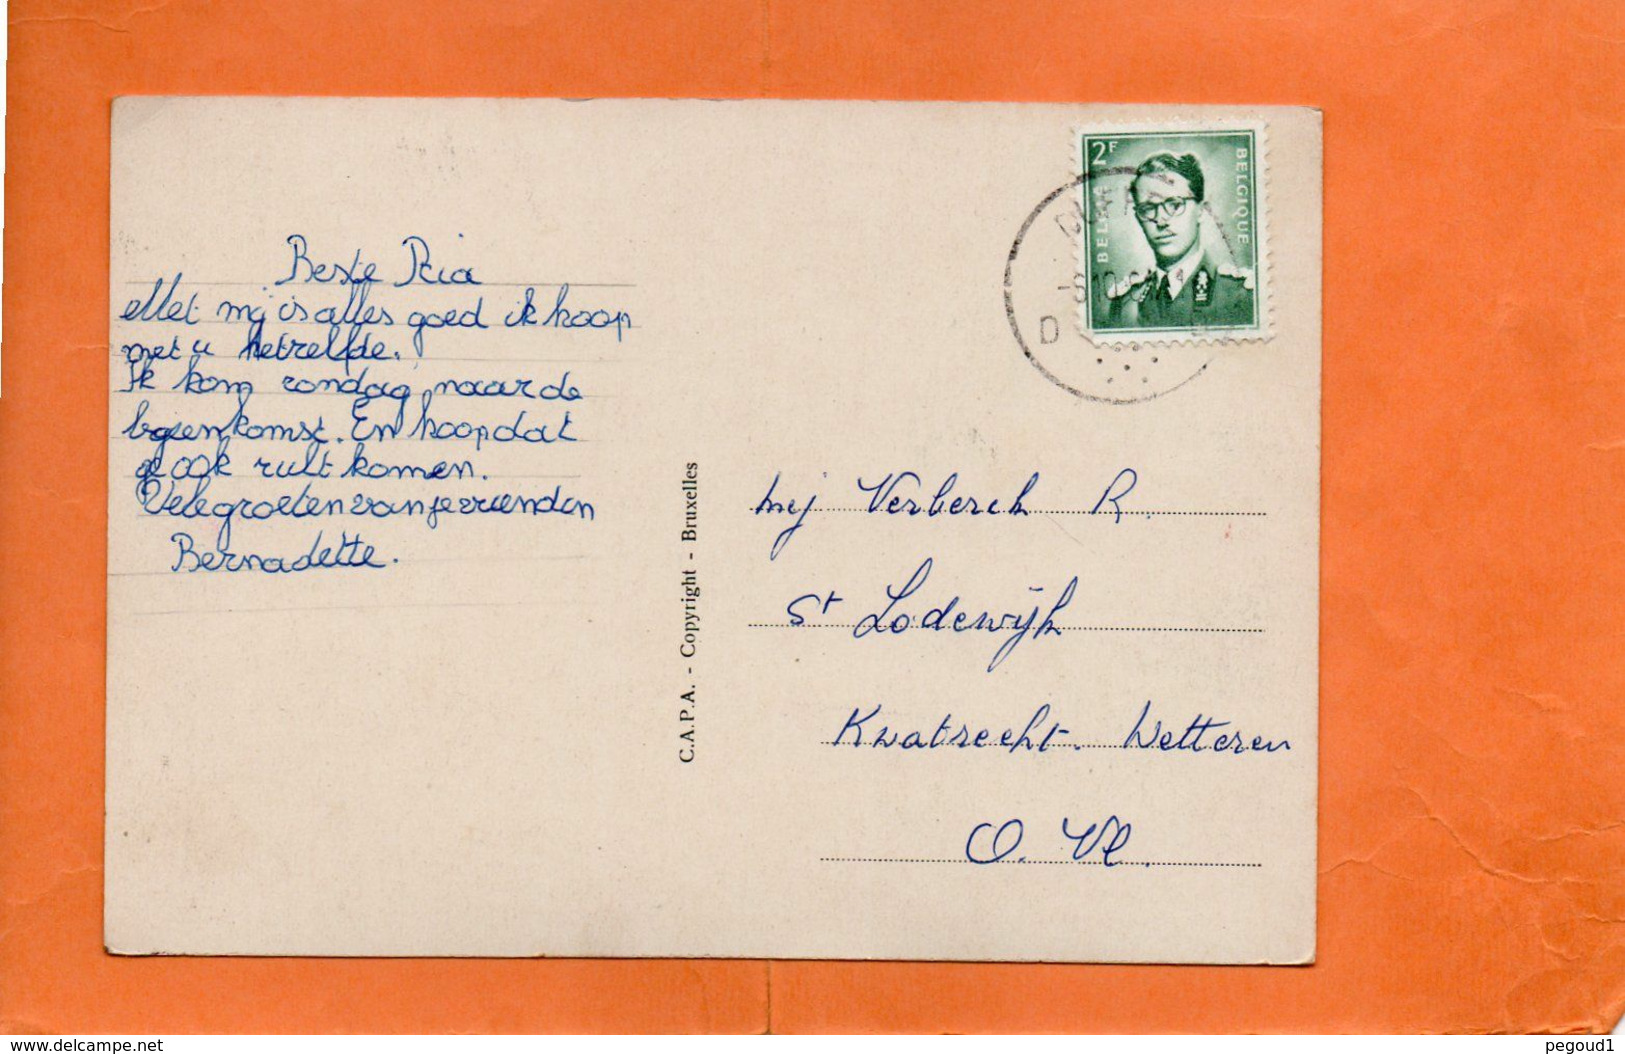 Beste Ria
Met mij is alles goed ik hoop
met u hetzelfde.
Ik kom zondag naar de
bijeenkomst. En hoop dat
je ook zult komen.
Vele groeten van je vriendin
Bernadette.
C.A.P.A. - Copyright - Bruxelles
2F
BELGIQUE
BELGIË
D
mej Verberck R.
St Lodewijk
Kwatrecht. Wetteren
O. Vl.
www.delcampe.net
pegoud1